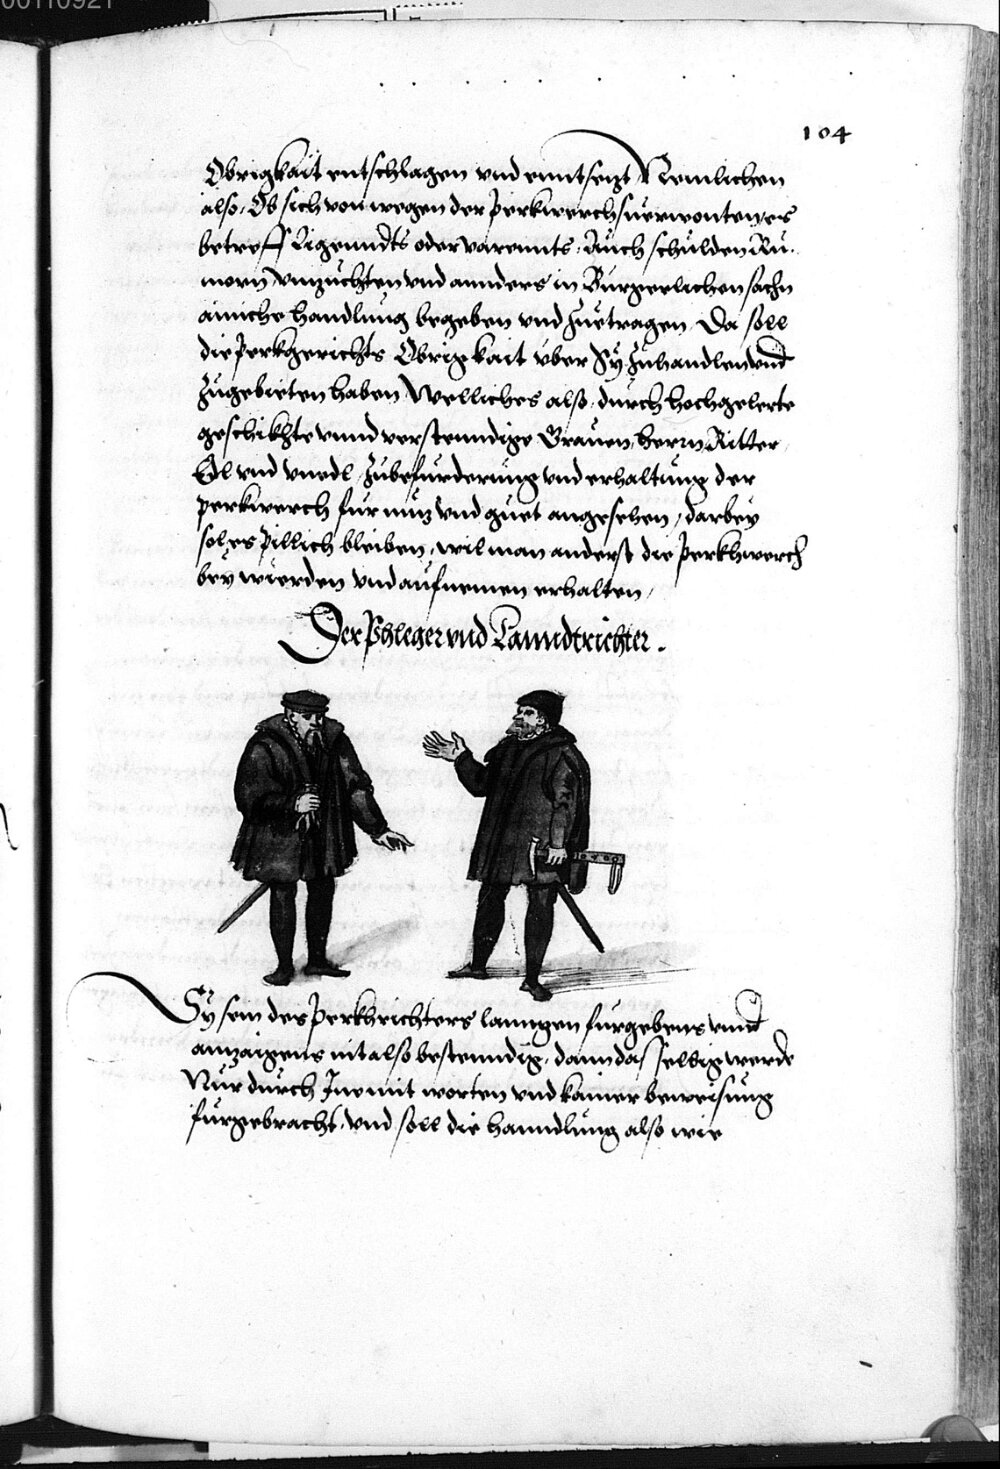 00110921
104
Obrigkait entschlagen vnd enntsezt Nemlichen
also, Ob sich von wegen der Perkwerchsuerwonten, es
betreff Ligenndts oder varennts, Auch schulden Ru„
morn vnzuchten vnd annders in Burgerlichen sachn
ainiche handlung begeben vnd zuetragen, Da soll
die Perkhgerichts Obrigkait über Sy zuhandlen vnd
zugebieten haben Welliches also, durch hochgelerte
geschikhte vnnd verstenndige Grauen, herrn, Ritter,
Edl vnd vnedl, zubefurderung vnd erhaltung der
perkwerch fur nuz vnd guet angesehen, darbey
sol es pillich bleiben, wil man anderst die Perkhwerch
bey wierden vnd aufnemen erhalten,
Der Phleger vnd Lanndtrichter.
Sy sein des Perkhrichters lanngen furgebens vnnd
anzaigens nit also bestenndig, dann dasselbig werde
Nur durch Ine mit worten vnd kainer beweisung
furgebracht, vnd soll die hanndlung also wie